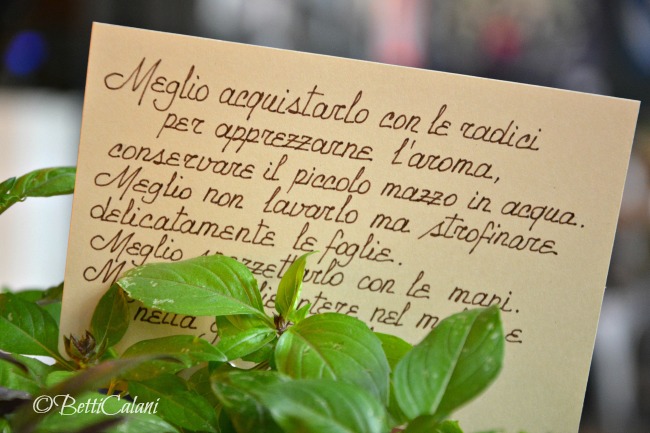 Meglio acquistarlo con le radici
per apprezzarne l'aroma,
conservare il piccolo mazzo in acqua.
Meglio non lavarlo ma strofinare
delicatamente le foglie.
Meglio con le mani.
nel
nella
©BettiCalani